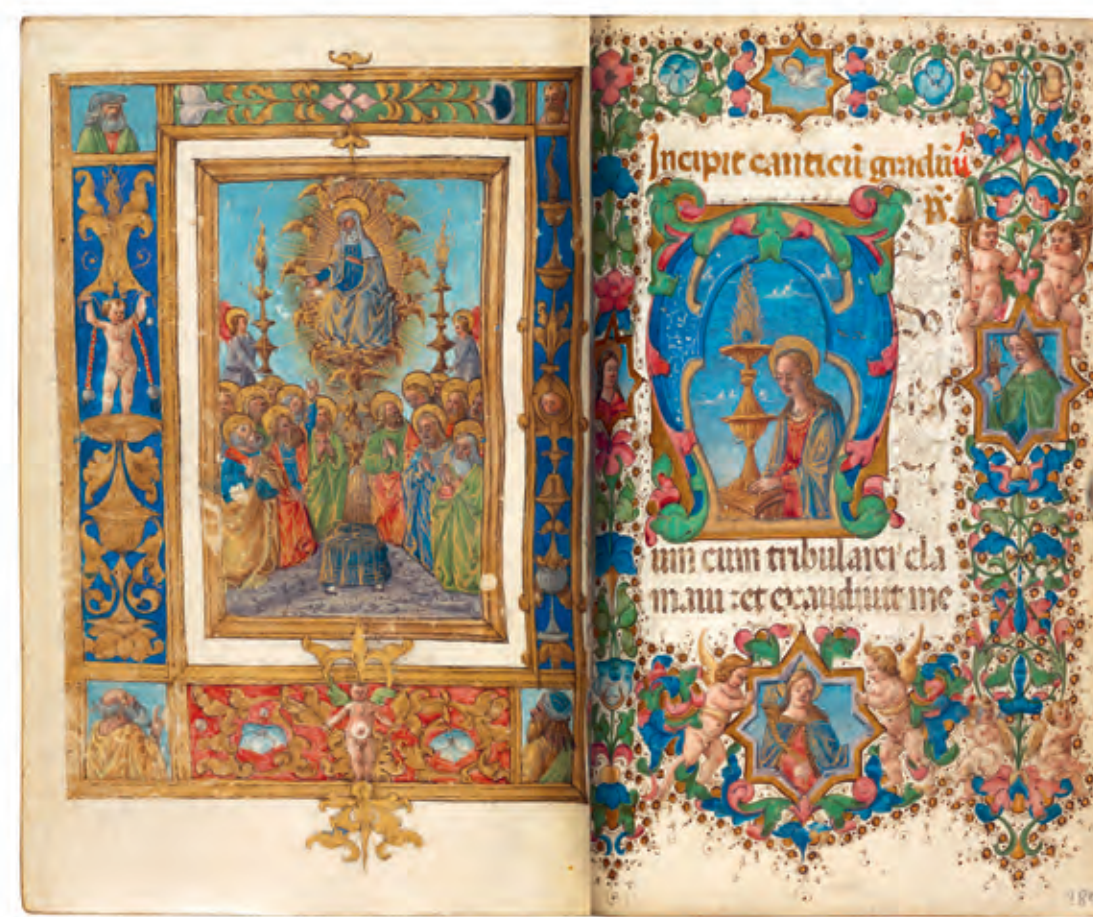 Incipit canticũ graduũ
num cum tribularer cla
maui : et exaudiuit me